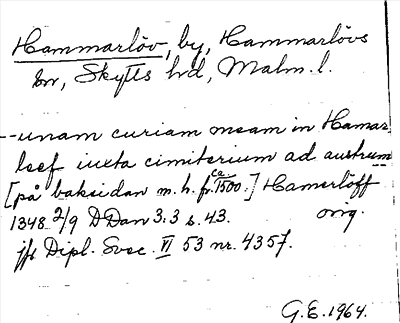 Hammarlöv, by, Hammarlövs
sn, Skytts hd, Malm. l.
--unam curiam meam in Hamar
leef iuxta cimiterium ad austrum
[på baksidan m. h. fr. ca 1500.] Hamerlöff
1348 2/9 DDan 3:3 s. 43. orig.
jfr Dipl. Svec. VI 53 nr. 4357.
G.E. 1964.